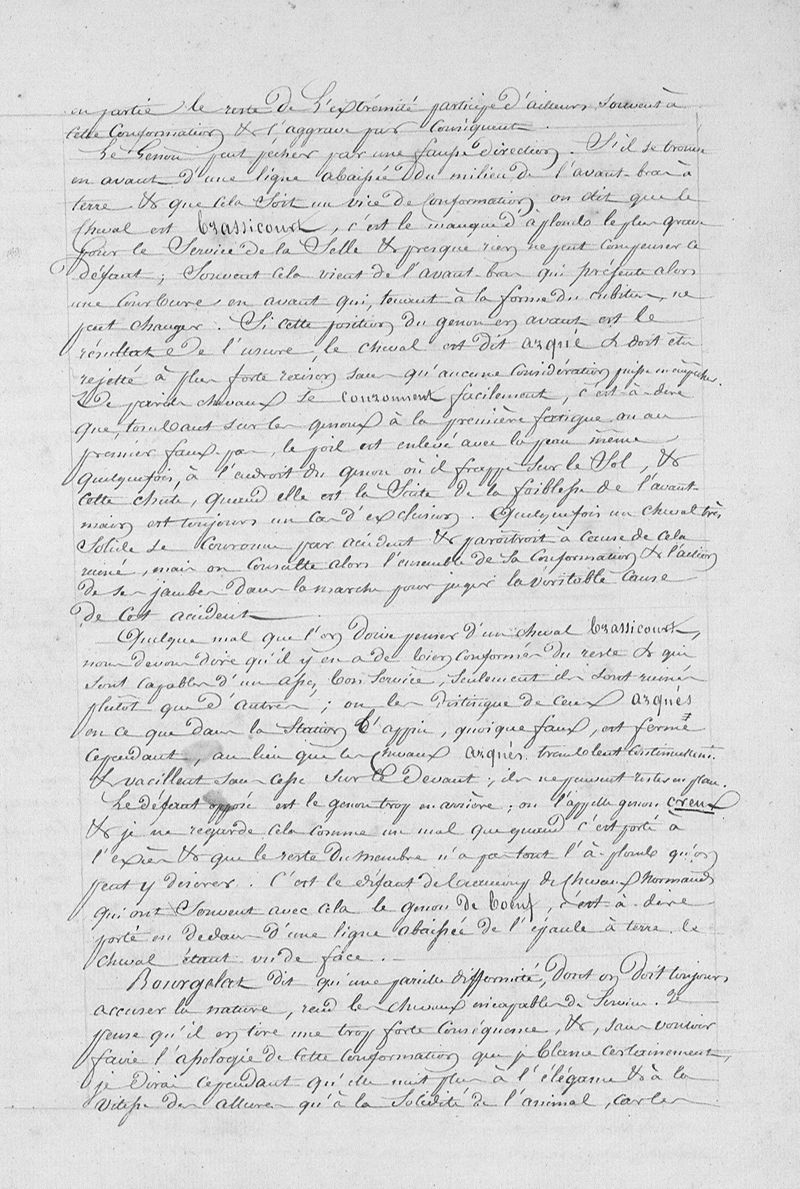 en partie le reste de l'extrémité participe d'ailleurs souvent à
cette conformation & l'aggrave par conséquent.
Le Genou peut pécher par une fausse direction. S'il se trouve
en avant d'une ligne abaissée du milieu de l'avant-bras à
terre & que cela soit un vice de conformation on dit que le
cheval est brassicourt, c'est le manque d'àplomb le plus grave
pour le Service de la Selle & presque rien ne peut compenser ce
défaut; Souvent cela vient de l'avant-bras qui présente alors
une courbure en avant qui, tenant à la forme du cubitus, ne
peut changer. Si cette position du genou en avant est le
résultat de l'usure, le cheval est dit arqué & doit être
rejetté à plus forte raison sans qu'aucune considération puisse en empêcher.
De pareils chevaux se couronnent facilement, c'est-à-dire
que, tombant sur les genoux à la première fatigue ou au
premier faux-pas, le poil est enlevé avec la peau même
quelquefois, à l'endroit du genou où il frappe sur le Sol, &
cette chute, quand elle est la Suite de la foiblesse de l'avant-
main est toujours un cas d'exclusion. Quelquefois un cheval très
Solide se couronne par accident & paroîtroit à cause de cela
ruiné, mais on consulte alors l'ensemble de sa conformation & l'action
de ses jambes dans la marche pour juger la véritable cause
de cet accident
Quelque mal que l'on doive penser d'un cheval brassicourt,
nous devons dire qu'il y en a de bien conformés du reste & qui
sont capables d'un assez bon service, seulement ils sont ruinés
plutôt que d'autres; on les distingue de ceux arqués
en ce que dans la station l'appui, quoique faux, est ferme
cependant, au lieu que les chevaux arqués tremblent continuellement
& vacillent sans cesse sur le devant; ils ne peuvent rester en place.
Le défaut opposé est le genou trop en arrière; on l'appelle genou creux
& je ne regarde cela comme un mal que quand c'est porté à
l'excès & que le reste du membre n'a pas tout l'à-plomb qu'on
peut y désirer. C'est le défaut de beaucoup de chevaux Normands
qui ont Souvent avec cela le genou de boeuf, c'est-à-dire
porté en dedans d'une ligne abaissée de l'épaule à terre le
cheval étant vu de face.
Bourgelat dit qu'une pareille difformité, dont on doit toujours
accuser la nature, rend les chevaux incapables de Service. Je
pense qu'il en tire une trop forte conséquence, &, sans vouloir
faire l'apologie de cette conformation que je blâme certainement,
je dirai cependant qu'elle nuit plus à l'élégance & à la
vitesse des allures qu'à la Solidité de l'animal, car les